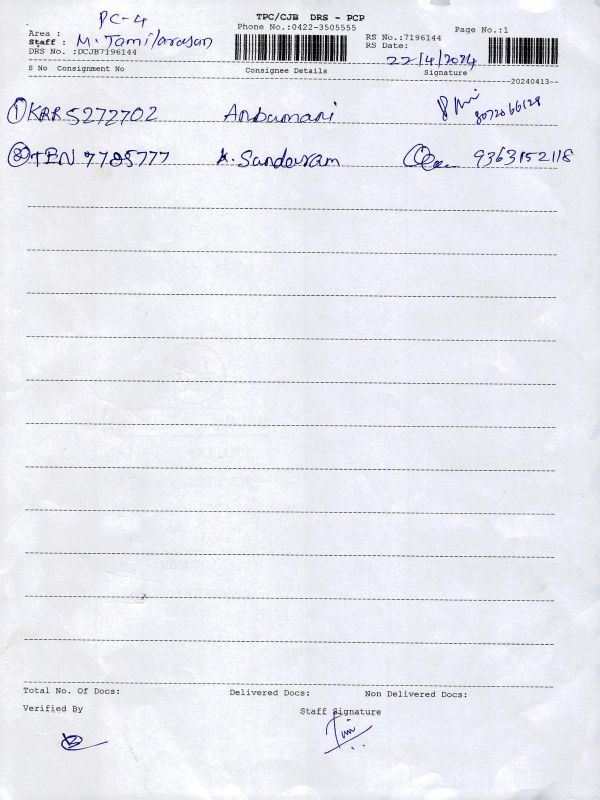 PC-4
TPC/CJB DRS - PCP
Phone No.:0422-3505555
Page No.:1
Area :
Staff : M. Tamilarasan
RS No.:7196144
DRS No. :DCJB7196144
RS Date: 22/4/2024
S No Consignment No Consignee Details Signature
20240413
1 KRR5272702 Anbumani 8072066128
2 TEN 7785777 K. Sundaram 9363152118
Total No. Of Docs: Delivered Docs: Non Delivered Docs:
Verified By Staff Signature